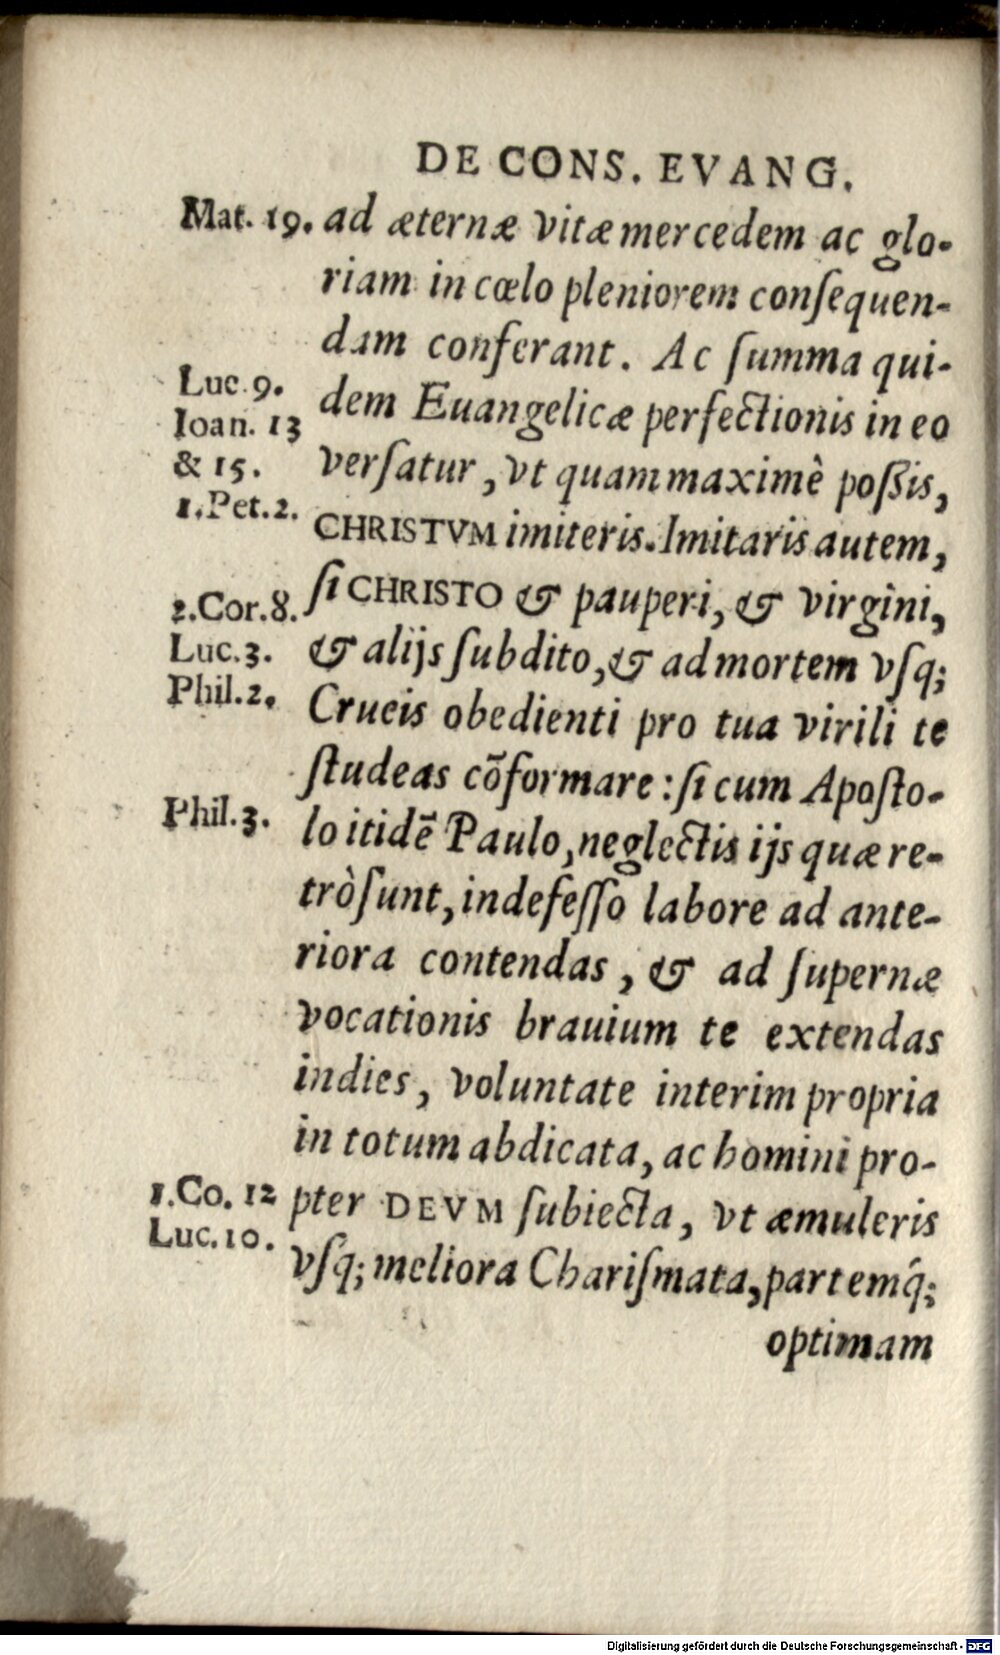 DE CONS. EVANG.
Mat. 19. ad æternæ vitæ mercedem ac glo-
riam in cœlo pleniorem conſequen-
dam conferant. Ac ſumma qui-
Luc. 9.
dem Euangelicæ perfectionis in eo
Ioan. 13
& 15.
verſatur, vt quam maximè poßis,
1.Pet.2.
CHRISTVM imiteris. Imitaris autem,
2.Cor.8.
ſi CHRISTO & pauperi, & virgini,
Luc.3.
& alijs ſubdito, & ad mortem vſq;
Phil.2.
Crucis obedienti pro tua virili te
ſtudeas cõformare: ſi cum Apoſto-
Phil.3.
lo itidẽ Paulo, neglectis ijs quæ re-
trò ſunt, indefeſſo labore ad ante-
riora contendas, & ad ſupernæ
vocationis brauium te extendas
indies, voluntate interim propria
in totum abdicata, ac homini pro-
1.Co. 12
pter DEVM ſubiecta, vt æmuleris
Luc.10.
vſq; meliora Chariſmata, partemq́;
optimam
Digitalisierung gefördert durch die Deutsche Forschungsgemeinschaft - DFG